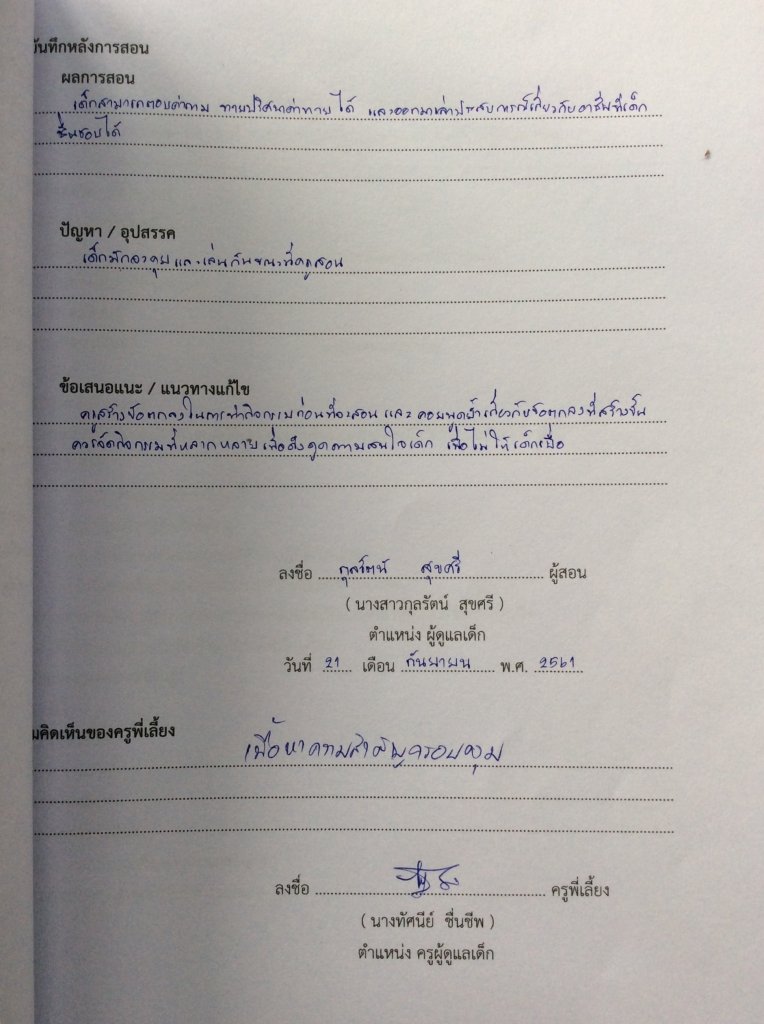 บันทึกหลังการสอน
ผลการสอน
เด็กสามารถตอบคำถาม ทายปริศนาคำทายได้ และออกมาเล่าประสบการณ์เกี่ยวกับอาชีพที่เด็ก
ชื่นชอบได้
ปัญหา / อุปสรรค
เด็กมักจะคุยและเล่นกันขณะที่ครูสอน
ข้อเสนอแนะ / แนวทางแก้ไข
ครูสร้างข้อตกลงในการทำกิจกรรมก่อนที่จะสอน และ คอยพูดย้ำเกี่ยวกับข้อตกลงที่สร้างขึ้น
ควรจัดกิจกรรมที่หลากหลายเพื่อดึงดูดความสนใจเด็ก เพื่อไม่ให้เด็กเบื่อ
ลงชื่อ กุลรัตน์ สุขศรี ผู้สอน
( นางสาวกุลรัตน์ สุขศรี )
ตำแหน่ง ผู้ดูแลเด็ก
วันที่ 21 เดือน กันยายน พ.ศ. 2561
มคิดเห็นของครูพี่เลี้ยง
เนื้อหาความสำคัญครอบคุม
ลงชื่อ ครูพี่เลี้ยง
( นางทัศนีย์ ชื่นชีพ )
ตำแหน่ง ครูผู้ดูแลเด็ก